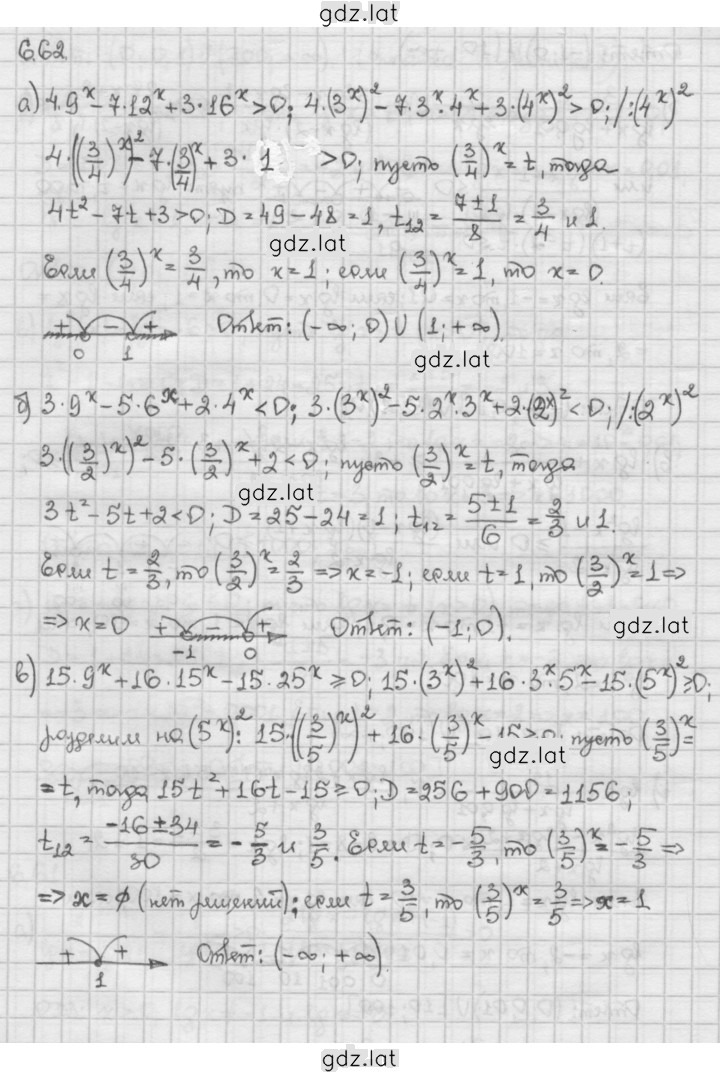 gdz.lat
6.62.
а) 4·9^x − 7·12^x + 3·16^x > 0; 4·(3^x)^2 − 7·3^x·4^x + 3·(4^x)^2 > 0; /:(4^x)^2
4·((3/4)^x)^2 − 7·(3/4)^x + 3·1 > 0; пусть (3/4)^x = t, тогда
4t^2 − 7t + 3 > 0; D = 49 − 48 = 1, t_12 = (7±1)/8 = 3/4 и 1.
gdz.lat
Если (3/4)^x = 3/4, то x = 1; если (3/4)^x = 1, то x = 0.
+ − + 0 1 Ответ: (−∞; 0) ∪ (1; +∞).
gdz.lat
б) 3·9^x − 5·6^x + 2·4^x < 0; 3·(3^x)^2 − 5·2^x·3^x + 2·(2^x)^2 < 0; /:(2^x)^2
3·((3/2)^x)^2 − 5·(3/2)^x + 2 < 0; пусть (3/2)^x = t, тогда
gdz.lat
3t^2 − 5t + 2 < 0; D = 25 − 24 = 1; t_12 = (5±1)/6 = 2/3 и 1.
Если t = 2/3, то (3/2)^x = 2/3 ⇒ x = −1; если t = 1, то (3/2)^x = 1 ⇒
⇒ x = 0 + − + −1 0 Ответ: (−1; 0).
gdz.lat
в) 15·9^x + 16·15^x − 15·25^x ≥ 0; 15·(3^x)^2 + 16·3^x·5^x − 15·(5^x)^2 ≥ 0;
разделим на (5^x)^2: 15·((3/5)^x)^2 + 16·(3/5)^x − 15 ≥ 0. пусть (3/5)^x =
gdz.lat
= t, тогда 15t^2 + 16t − 15 ≥ 0; D = 256 + 900 = 1156;
t_12 = (−16±34)/30 = −5/3 и 3/5. Если t = −5/3, то (3/5)^x = −5/3 ⇒
⇒ x = ∅ (нет решений); если t = 3/5, то (3/5)^x = 3/5 ⇒ x = 1
+ + 1 Ответ: (−∞; +∞).
gdz.lat